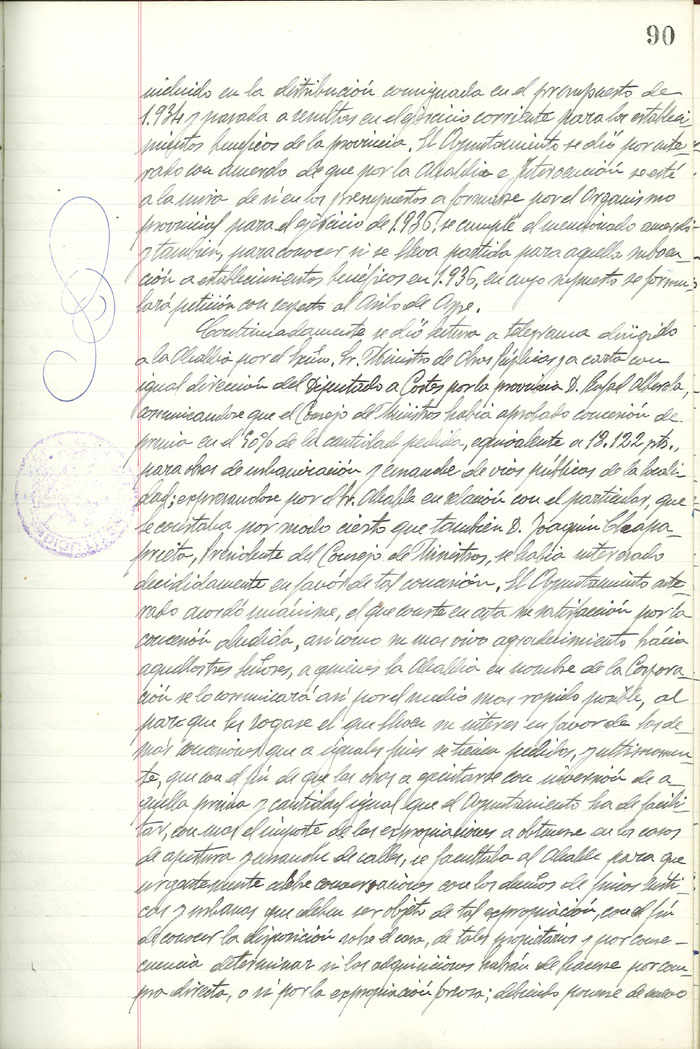 90
incluido en la distribución consignada en el presupuesto de
1.934 y pasada a resultas en el ejercicio corriente para los estableci
mientos benéficos de la provincia. El Ayuntamiento se dió por ente-
rado con acuerdo de que por la Alcaldía e Intervención se esté
a la mira de si en los presupuestos a formarse por el Organismo
provincial para el ejercicio de 1.936, se cumple el mencionado acuerdo
y tambien, para conocer si se lleva partida para aquella subven-
ción a establecimientos benéficos en 1.936, en cuyo supuesto se formu-
lará petición con respecto al Asilo de Aspe.
Continuadamente se dió lectura a telegrama dirigido
a la Alcaldía por el Excmo. Sr. Ministro de Obras Públicas y a carta con
igual dirección del Diputado a Cortes por la provincia D. Rafael Alberola,
comunicandose que el Consejo de Ministros había aprobado concesión de
prima en el 90% de la cantidad pedida, equivalente a 18.122 pts.,
para obras de urbanización y ensanche de vías publicas de la locali-
dad; expresandose por el Sr. Alcalde en relación con el particular, que
le constaba por modo cierto que también D. Joaquín Chapa-
prieta, Presidente del Consejo de Ministros, se había interesado
decididamente en favor de tal concesión. El Ayuntamiento ente-
rado acordó unánime, el que conste en acta su satisfacción por la
concesión aludida, así como su mas vivo agradecimiento hácia
aquellos tres Señores, a quienes la Alcaldía en nombre de la Corpora-
ción se lo comunicará así por el medio mas rapido posible, al
par que les rogase el que lleven su interes en favor de las de-
más concesiones que a iguales fines se tienen pedidas, y ultimamen-
te, que con el fin de que las obras a ejecutarse con inversión de a-
quella prima y cantidad igual que el Ayuntamiento ha de facili-
tar, con mas el importe de las expropiaciones a obtenerse en los casos
de apertura y ensanche de calles, se facultaba al Alcalde para que
urgentemente celebre conversaciones con los dueños de fincas rústi-
cas y urbanas que deben ser objeto de tal expropiación, con el fin
de conocer la disposición sobre el caso, de tales propietarios y por conse-
cuencia determinar si las adquisiciones habrán de hacerse por com-
pra directa, o si por la expropiación forzosa; debiendo ponerse de nuevo